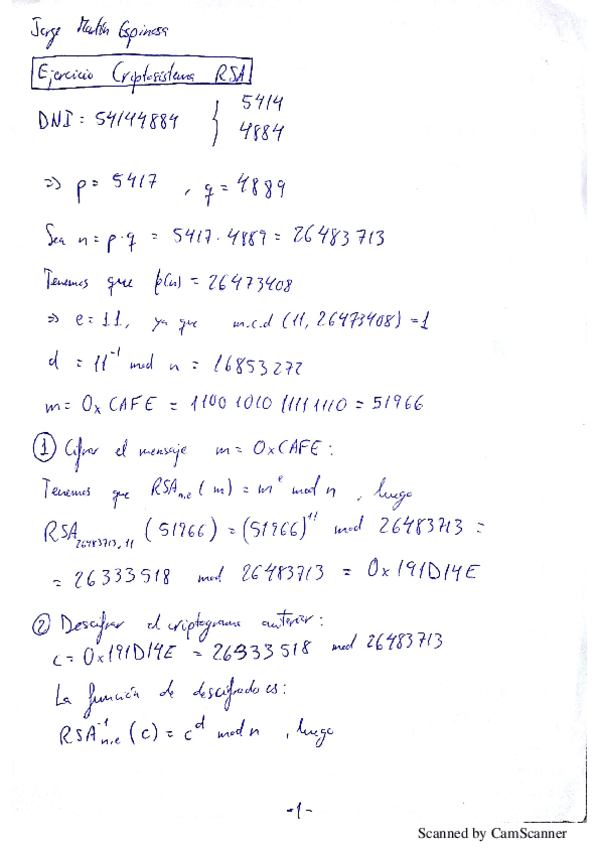 Jorge Martín Espinosa
Ejercicio Criptosistema RSA
DNI = 54144884 } 5414
4884
=> p = 5417 , q = 4889
Sea n = p·q = 5417·4889 = 26483713
Tenemos que ϕ(n) = 26473408
=> e = 11, ya que m.c.d (11, 26473408) = 1
d = 11⁻¹ mod n = 16853272
m = 0xCAFE = 1100 1010 1111 1110 = 51966
① Cifrar el mensaje m = 0xCAFE :
Tenemos que RSAₙ,ₑ(m) = mᵉ mod n , luego
RSA₂₆₄₈₃₇₁₃,₁₁ (51966) = (51966)¹¹ mod 26483713 =
= 26333518 mod 26483713 = 0x191D14E
② Descifrar el criptograma anterior :
c = 0x191D14E = 26333518 mod 26483713
La función de descifrado es :
RSA⁻¹ₙ,ₑ (c) = cᵈ mod n , luego
-1-
Scanned by CamScanner